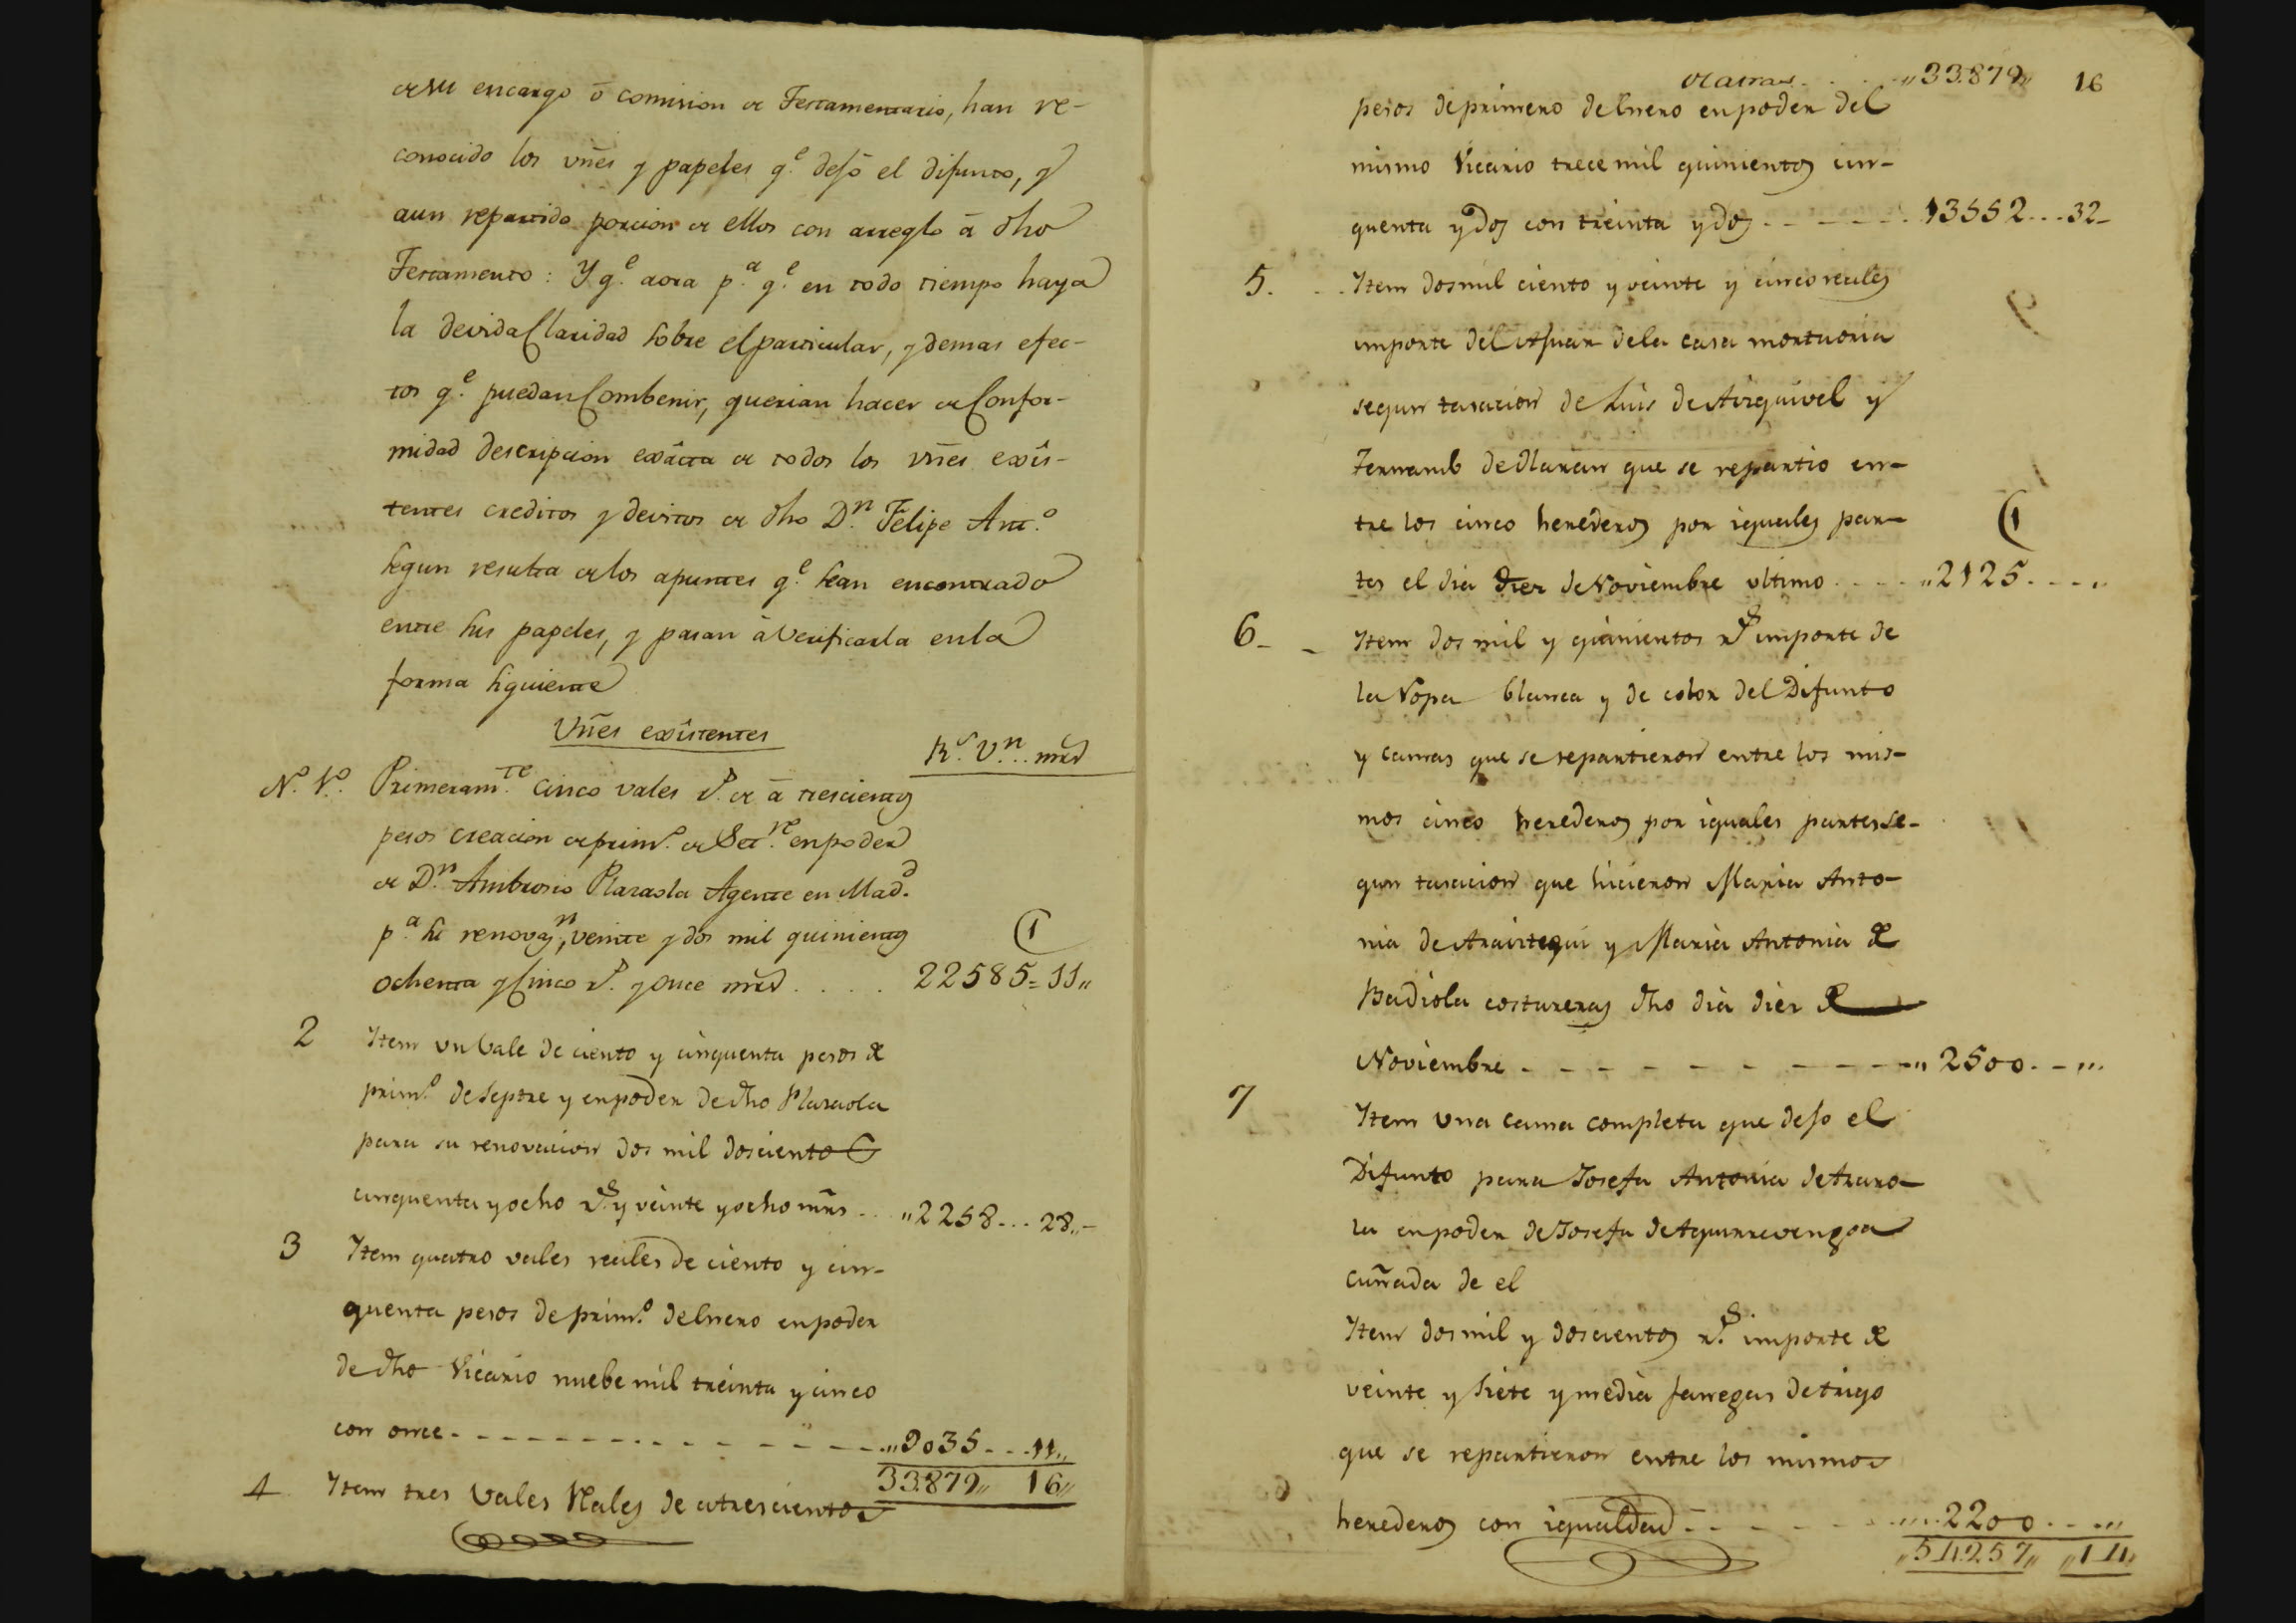 de su encargo ó comision de Testamentario, han re-
conocido los vñes y papeles q.e dejó el difunto, y
aun repartido porcion de ellos con arreglo á dho
Testamento: Y q.e aora p.a q.e en todo tiempo haya
la devida Claridad sobre el particular, y demas efec-
tos q.e puedan Combenir, querian hacer de Confor-
midad descripcion exâcta de todos los vñes exîs-
tentes creditos y devitos de dho D.n Felipe Ant.o
segun resulta de los apuntes q.e sean encontrado
entre sus papeles, y pasan á Verificarla en la
forma siguiente
Vñes exîstentes
R.s V.n... mrs
N.o 1.o Primeram.te Cinco vales R. de á trescientos
pesos creacion de prim.o de Set.re en poder
de D.n Ambrosio Plazaola Agente en Mad.d
p.a su renovaz.n, veinte y dos mil quinientos
ochenta y Cinco r.s y once mrs . . . . 22585=11„
2 Item un Vale de ciento y cinquenta pesos de
prim.o de Septre y en poder de dho Plazaola
para su renovacion dos mil doscientos
cinquenta y ocho r.s y veinte y ocho mrs . . „2258...28..-
3 Item quatro vales reales de ciento y cin-
quenta pesos de prim.o de Enero en poder
de dho Vicario nuebe mil treinta y cinco
con once - - - - - „9035...11„
33.879„ 16„
4 Item tres Vales Rales de atrescientos
de atras . . . „33.879„ 16
pesos de primero de Enero en poder del
mismo Vicario trece mil quinientos cin-
quenta y dos con treinta y dos - - - - 13552...32-
5. . . Item dos mil ciento y veinte y cinco reales
importe del Ajuar de la casa mortuoria
segun tasacion de Luis de Aizquivel y
Fernando de Naran que se repartio en-
tre los cinco herederos por iguales par-
tes el dia diez de Noviembre ultimo . . . . „2125. - - „
6- - Item dos mil y quinientos r.s importe de
la Ropa blanca y de color del Difunto
y camas que se repartieron entre los mis-
mos cinco herederos por iguales partes se-
gun tasacion que hicieron Maria Anto-
nia de Araiztegui y Maria Antonia de
Badiola costureras dho dia diez de
Noviembre - - - - - - - - „ 2500. - - „
7 Item una cama completa que dejo el
Difunto para Josefa Antonia de Azaro-
la en poder de Josefa de Aguirrevengoa
cuñada de el
Item dos mil y doscientos r.s importe de
veinte y siete y media fanegas de trigo
que se repartieron entre los mismos
herederos con igualdad - - - - „2200 . - - „
„54.257„ „14„